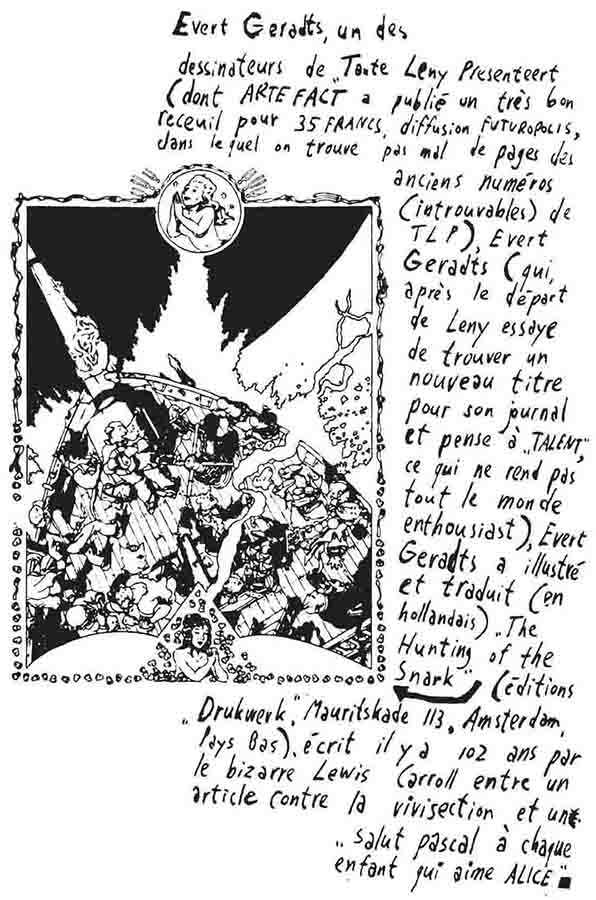 Evert Geradts, un des
dessinateurs de "Tante Leny Presenteert
(dont ARTEFACT" a publié un très bon
receuil pour 35 FRANCS, diffusion FUTUROPOLIS,
dans lequel on trouve pas mal de pages des
anciens numéros
(introuvables) de
TLP), Evert
Geradts (qui,
après le départ
de Leny essaye
de trouver un
nouveau titre
pour son journal
et pense à „TALENT",
ce qui ne rend pas
tout le monde
enthousiast), Evert
Geradts a illustré
et traduit (en
hollandais) „The
Hunting of the
Snark" (éditions
„Drukwerk", Mauritskade 113, Amsterdam,
Pays Bas), écrit il y a 102 ans par
le bizarre Lewis Carroll entre un
article contre la vivisection et un
„salut pascal à chaque
enfant qui aime ALICE"